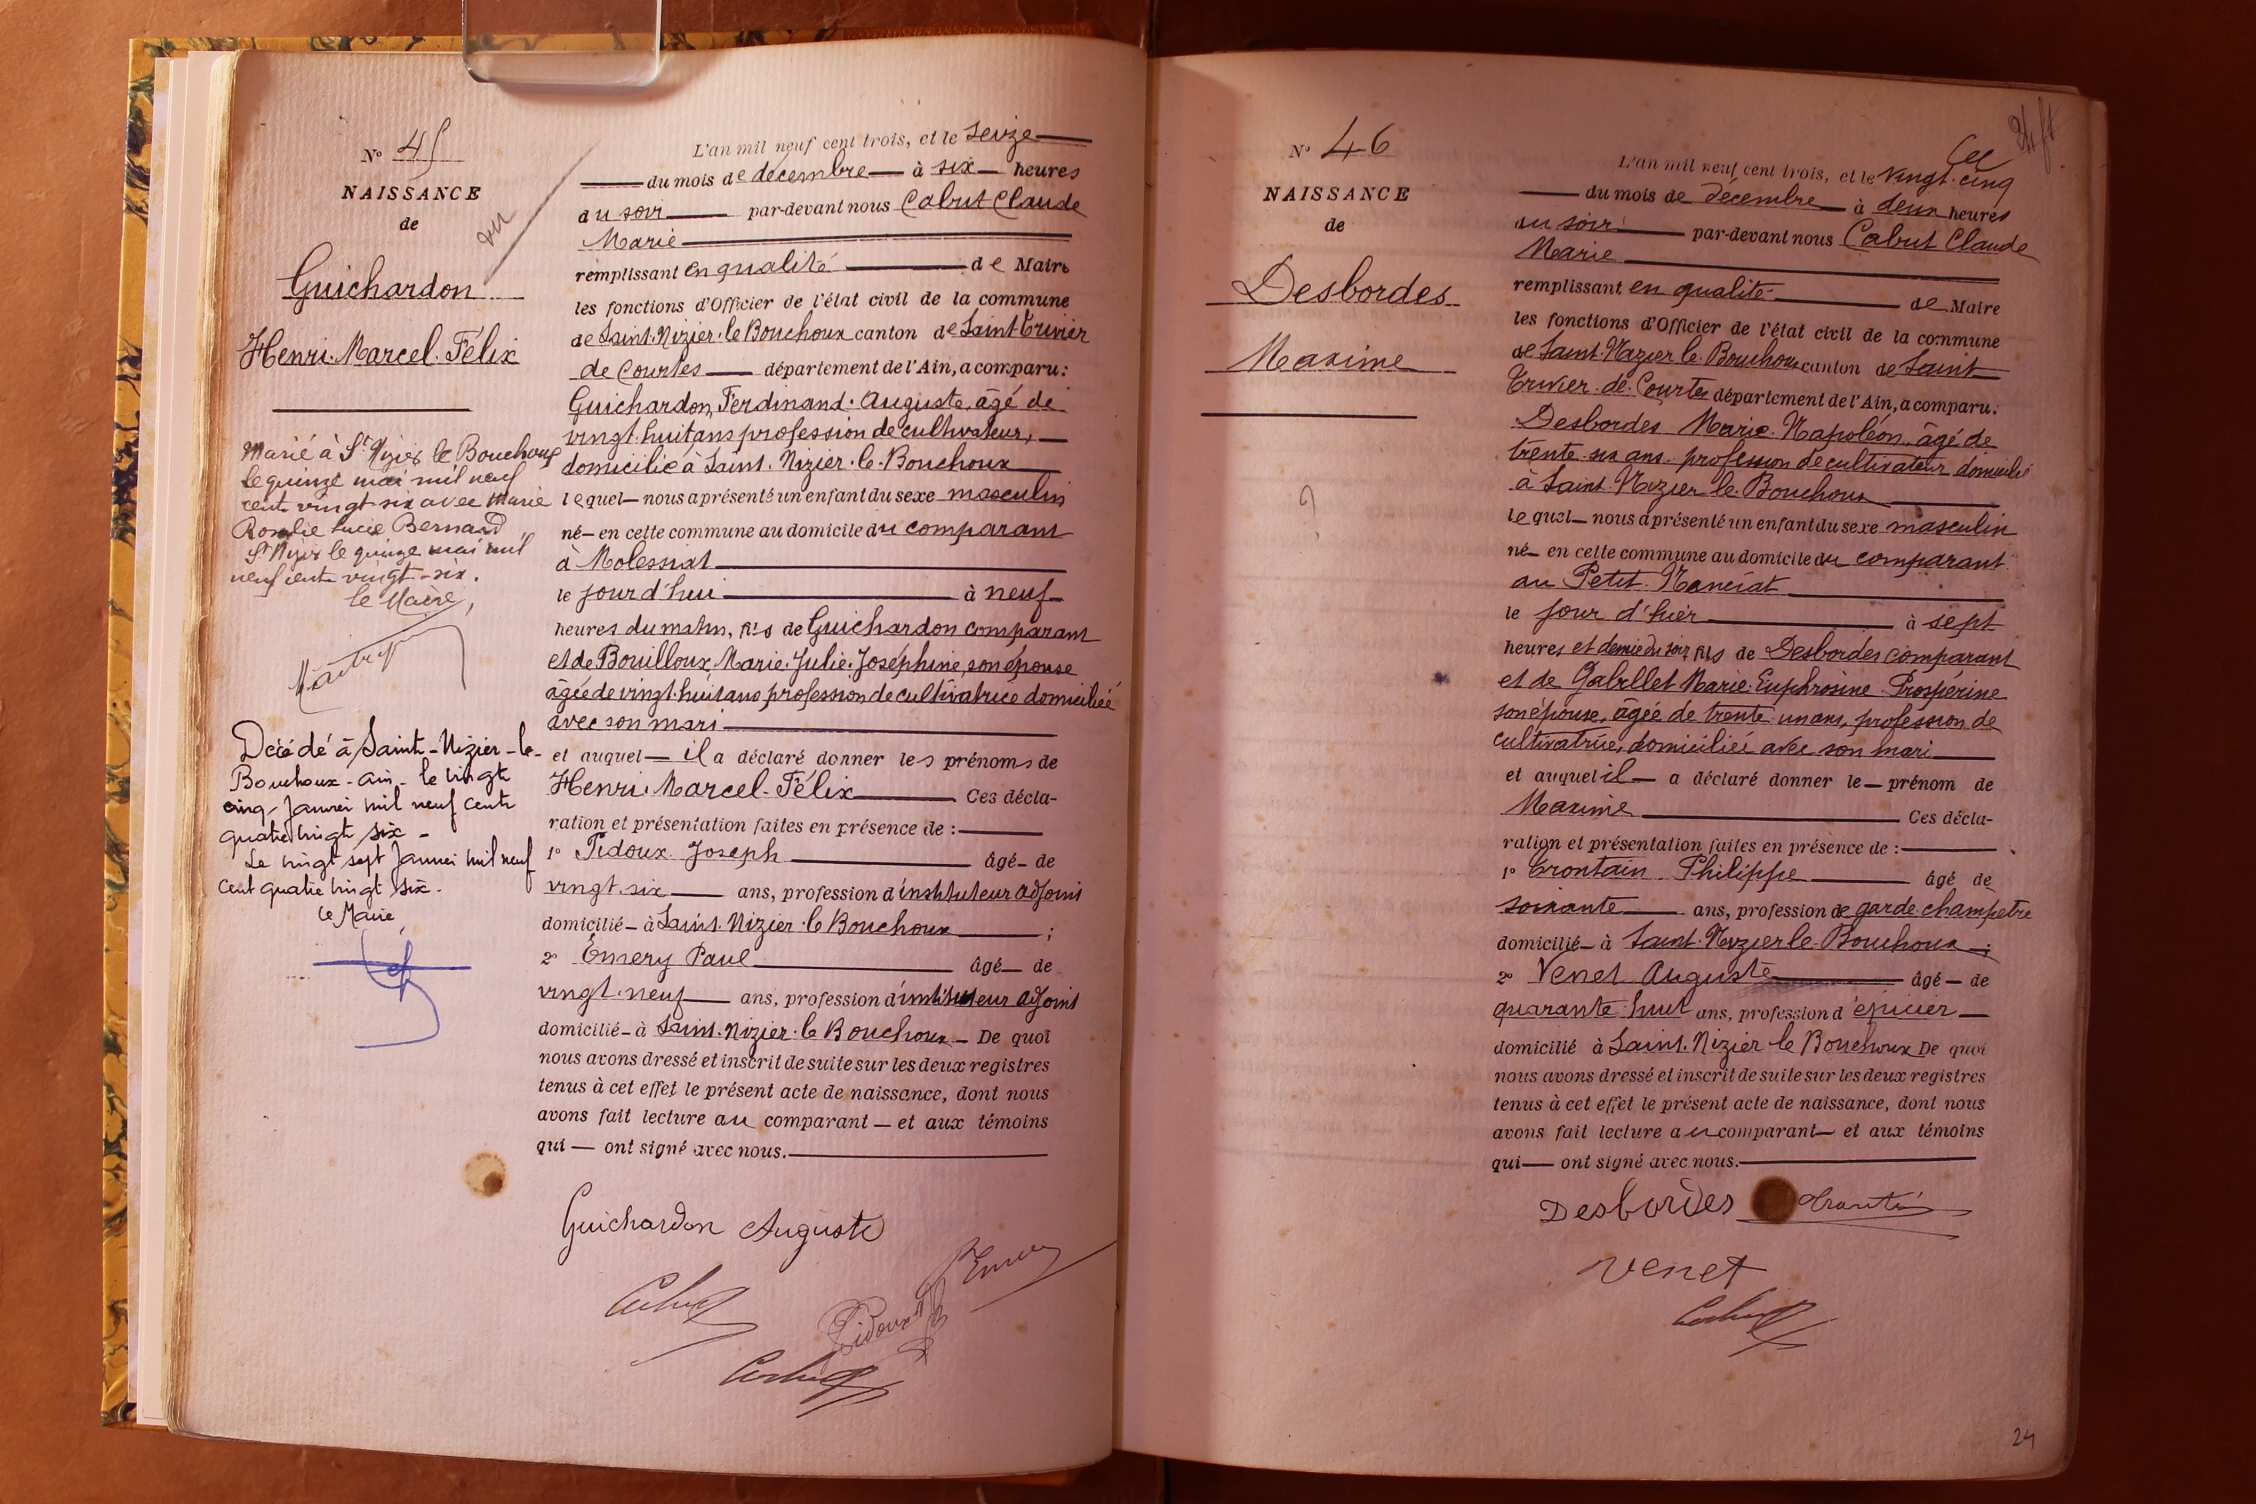 N° 45
NAISSANCE
de
Guichardon
Henri. Marcel. Félix
Marié à St Nizier le Bouchoux
le quinze mai mil neuf
cent vingt six avec Marie
Rosalie Lucie Bernard
St Nizier le quinze mai mil
neuf cent vingt-six.
le Maire,
Décédé à Saint-Nizier-le-
Bouchoux - Ain - le vingt
cinq Janvier mil neuf cent
quatre vingt six -
Le vingt sept Janvier mil neuf
cent quatre vingt six -
Le Maire,
vu
L'an mil neuf cent trois, et le seize
du mois de décembre à six heures
du soir par-devant nous Cabut Claude
Marie
remplissant en qualité de Maire
les fonctions d'Officier de l'état civil de la commune
de Saint. Nizier. le Bouchoux canton de Saint Trivier
de Courtes département de l'Ain, a comparu:
Guichardon, Ferdinand. Auguste, âgé de
vingt. huit ans profession de cultivateur,
domicilié à Saint. Nizier. le. Bouchoux
lequel nous a présenté un enfant du sexe masculin
né en cette commune au domicile du comparant
à Molessiat
le jour d'hui à neuf
heures du matin, fils de Guichardon comparant
et de Bouilloux, Marie. Julie. Joséphine, son épouse
âgée de vingt. huit ans profession de cultivatrice domiciliée
avec son mari
et auquel il a déclaré donner les prénoms de
Henri. Marcel. Félix Ces décla-
ration et présentation faites en présence de :
1° Pidoux Joseph âgé de
vingt. six ans, profession d'instituteur adjoint
domicilié à Saint. Nizier. le Bouchoux ;
2° Emery Paul âgé de
vingt. neuf ans, profession d'instituteur adjoint
domicilié à Saint. Nizier. le Bouchoux De quoi
nous avons dressé et inscrit de suite sur les deux registres
tenus à cet effet le présent acte de naissance, dont nous
avons fait lecture au comparant et aux témoins
qui ont signé avec nous.
Guichardon Auguste
Emery
Cabut
Pidoux
Cabut
24
N° 46
NAISSANCE
de
Desbordes
Maxime
L'an mil neuf cent trois, et le vingt. cinq
du mois de Décembre à deux heures
du soir par-devant nous Cabut Claude
Marie
remplissant en qualité de Maire
les fonctions d'Officier de l'état civil de la commune
de Saint. Nizier le. Bouchoux canton de Saint
Trivier. de. Courtes département de l'Ain, a comparu:
Desbordes Marie. Napoléon. âgé de
trente. six ans. profession de cultivateur domicilié
à Saint. Nizier le. Bouchoux
lequel nous a présenté un enfant du sexe masculin
né en cette commune au domicile du comparant
au Petit. Manciat
le jour d'hier à sept
heures et demie du soir, fils de Desbordes comparant
et de Gabillet Marie. Euphrosine. Prospérine
son épouse, âgée de trente. un ans, profession de
cultivatrice, domiciliée avec son mari
et auquel il a déclaré donner le prénom de
Maxime Ces décla-
ration et présentation faites en présence de :
1° Trontain Philippe âgé de
soixante ans, profession de garde champetre
domicilié à Saint. Nizier le. Bouchoux ;
2° Venet Auguste âgé de
quarante. huit ans, profession d'épicier
domicilié à Saint. Nizier le Bouchoux De quoi
nous avons dressé et inscrit de suite sur les deux registres
tenus à cet effet le présent acte de naissance, dont nous
avons fait lecture au comparant et aux témoins
qui ont signé avec nous.
Desbordes
venet
Cabut
24